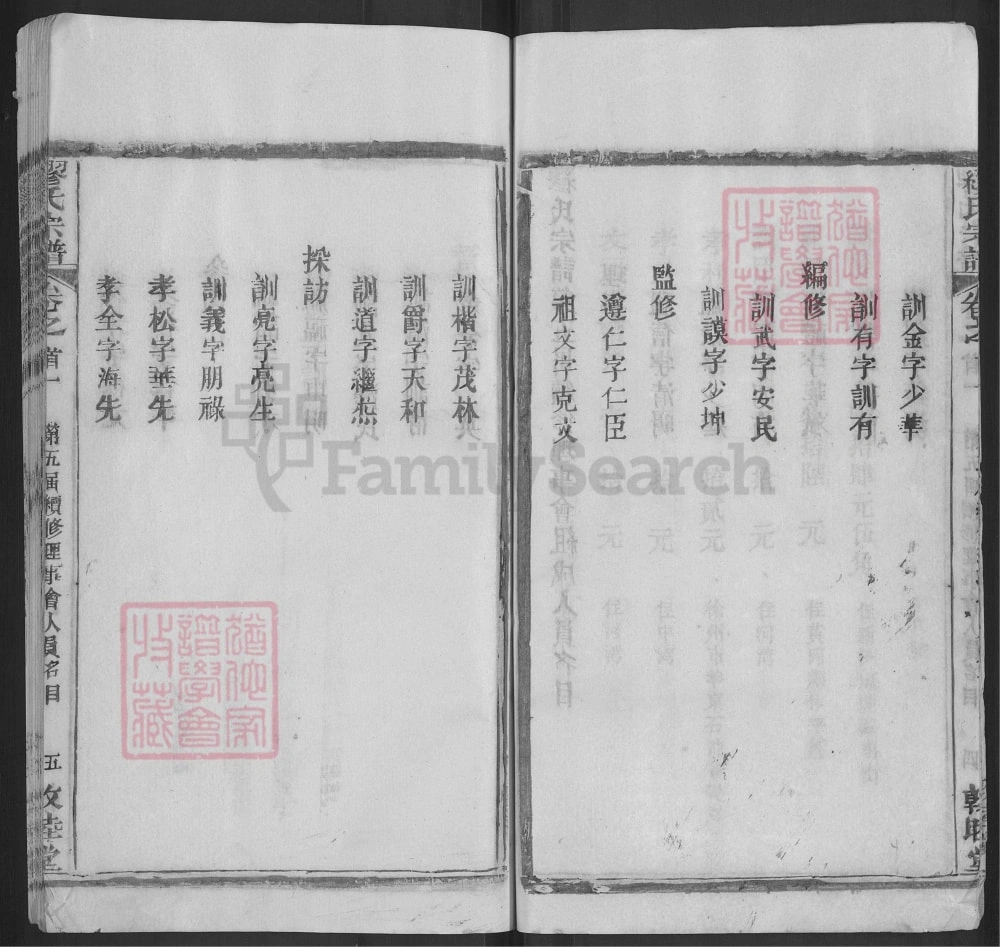 訓金字少華
訓有字訓有
編修
訓武字安民
訓謨字少坤
監修
遵仁字仁臣
祖文字克文
訓楷字茂林
訓爵字天和
訓道字繼燕
採訪
訓亮字亮生
訓義字朋祿
孝松字華先
孝全字海先
繆氏宗譜
卷之首一
第五屆續修理事會人員名目
五
敦睦堂
猶他家譜學會特藏
猶他家譜學會特藏
FamilySearch